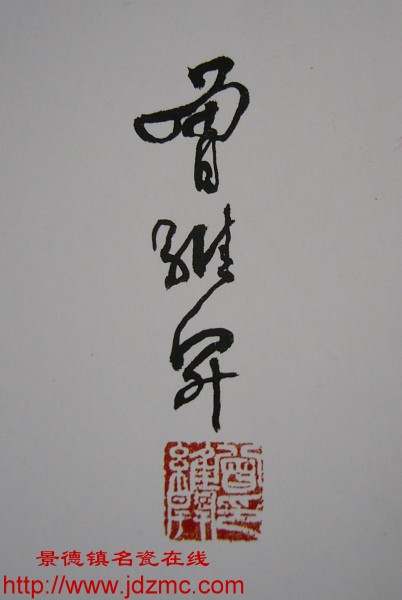 曾
維
開
曾印
維開
景德镇名瓷在线
http://www.jdzmc.com/